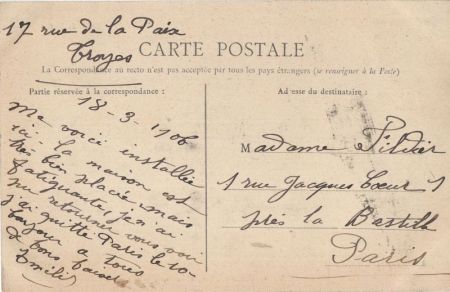 17 rue de la Paix
Troyes
CARTE POSTALE
La Correspondance au recto n'est pas acceptée par tous les pays étrangers (se renseigner à la Poste)
Partie réservée à la correspondance :
18-3-1906
Me voici installée
ici la maison est
très bien placée mais
fatiguante, j'en ai
pu retourner vous voir
j'ai quitté Paris le 10
bonjour a tous
& bons baisers
Emilie
Adresse du destinataire :
Madame
1 rue Jacques Cœur 1
près la Bastille
Paris